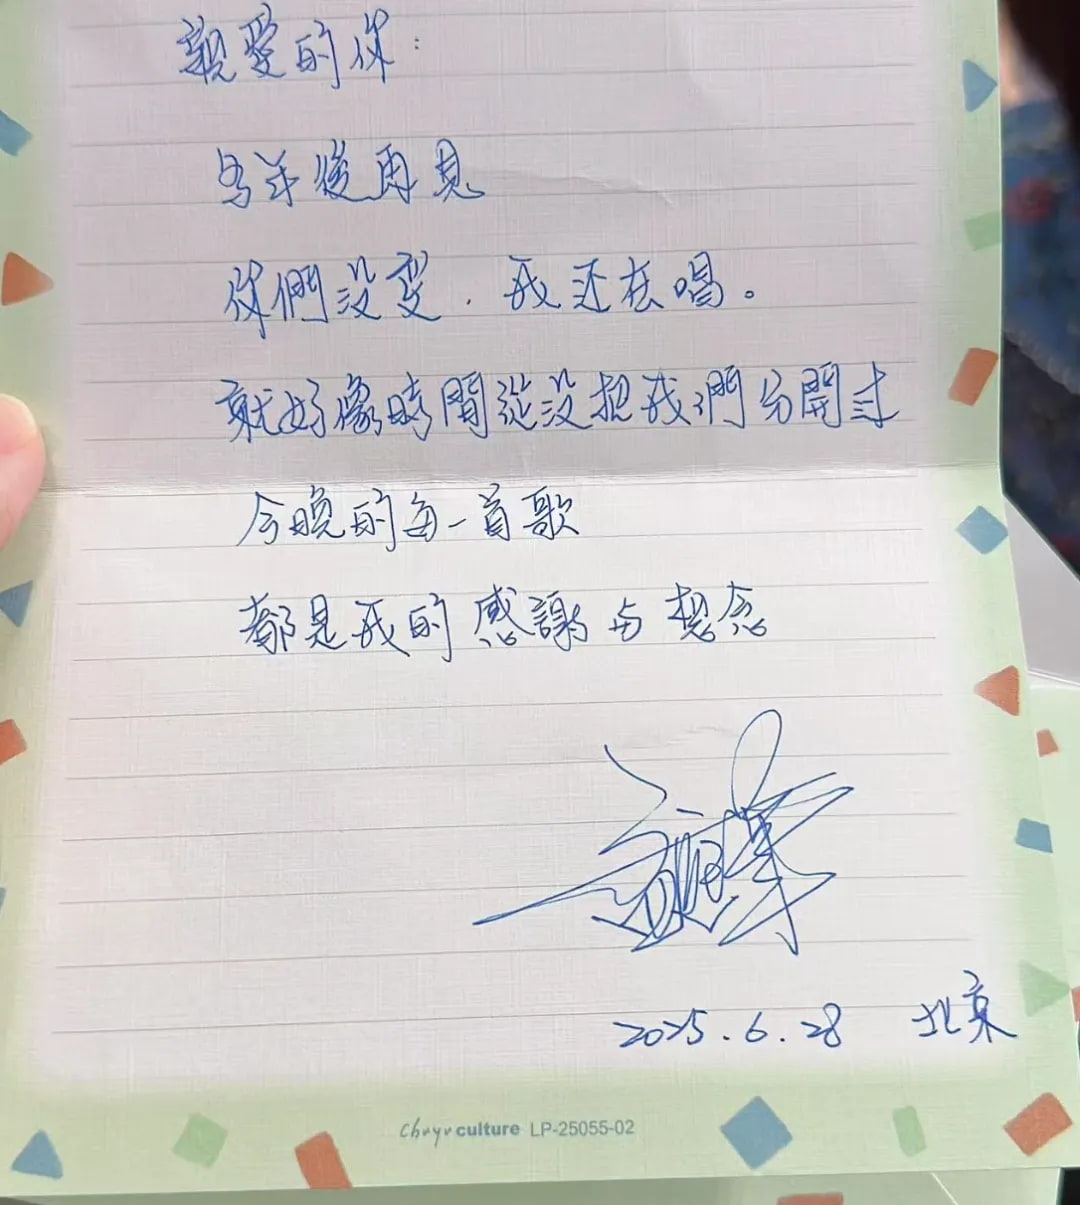 親愛的你：
多年後再見
你們沒變，我还在唱。
就好像時間從沒把我們分開过
今晚的每一首歌
都是我的感謝与想念
2025.6.28 北京
Chuyu culture LP-25055-02